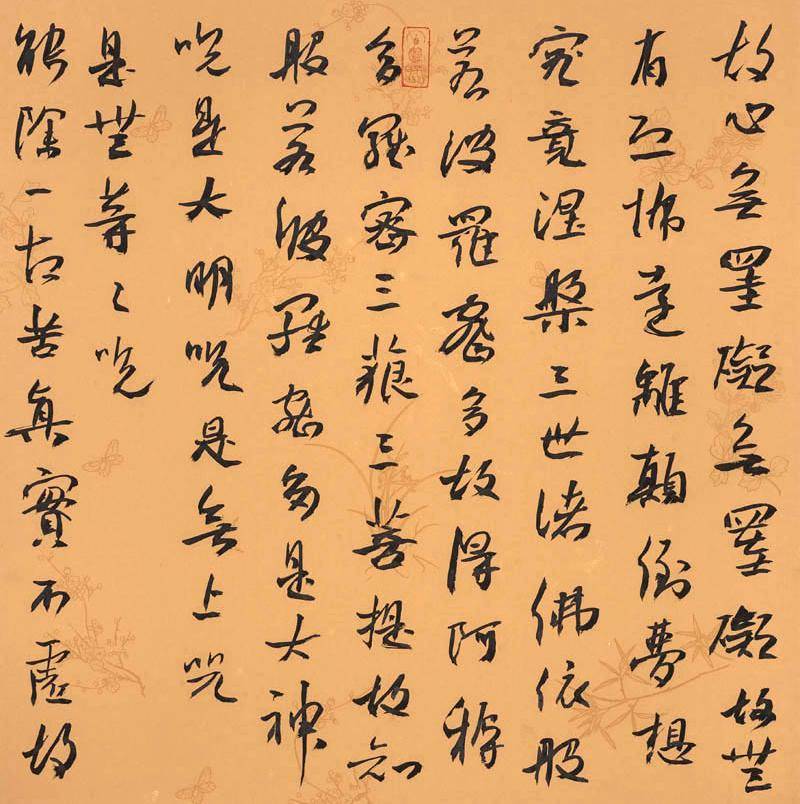 故心無罣礙無罣礙故無
有恐怖遠離顛倒夢想
究竟涅槃三世諸佛依般
若波羅蜜多故得阿耨
多羅蜜三藐三菩提故知
般若波羅蜜多是大神
咒是大明咒是無上咒
是無等々咒
能除一切苦真實不虛故